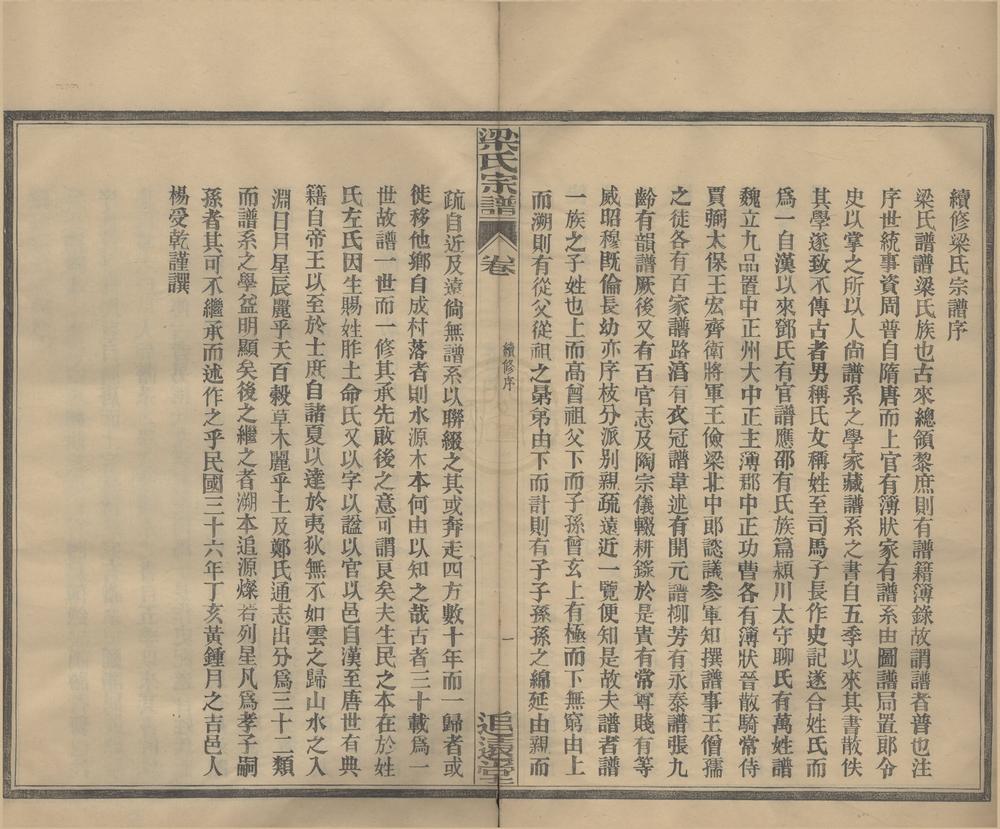 續修梁氏宗譜序
梁氏譜譜梁氏族也古來總領黎庶則有譜籍簿錄故謂譜者普也注
序世統事資周普自隋唐而上官有簿狀家有譜系由圖譜局置郎令
史以掌之所以人尚譜系之學家藏譜系之書自五季以來其書散佚
其學遂致不傳古者男稱氏女稱姓至司馬子長作史記遂合姓氏而
爲一自漢以來鄧氏有官譜應邵有氏族篇潁川太守聊氏有萬姓譜
魏立九品置中正州大中正主薄郡中正功曹各有簿狀晉散騎常侍
賈弼太保王宏齊衛將軍王儉梁北中郎諮議参軍知撰譜事王僧孺
之徒各有百家譜路淳有衣冠譜韋述有開元譜柳芳有永泰譜張九
齡有韻譜厥後又有百官志及陶宗儀輟耕錄於是貴有常尊賤有等
威昭穆既倫長幼亦序枝分派别親疏遠近一覽便知是故夫譜者譜
一族之子姓也上而高曾祖父下而子孫曾玄上有極而下無窮由上
而溯則有從父從祖之㬅弟由下而計則有子子孫孫之綿延由親而
梁氏宗譜
卷
續修序
一
追遠堂
疏自近及遠倘無譜系以聯綴之其或奔走四方數十年而一歸者或
徙移他鄉自成村落者則水源木本何由以知之哉古者三十載爲一
世故譜一世而一修其承先啟後之意可謂良矣夫生民之本在於姓
氏左氏因生賜姓胙土命氏又以字以諡以官以邑自漢至唐世有典
籍自帝王以至於士庶自諸夏以達於夷狄無不如雲之歸山水之入
淵日月星辰麗乎天百穀草木麗乎土及鄭氏通志出分爲三十二類
而譜系之學益明顯矣後之繼之者溯本追源燦若列星凡爲孝子嗣
孫者其可不繼承而述作之乎民國三十六年丁亥黃鍾月之吉邑人
楊受乾謹譔